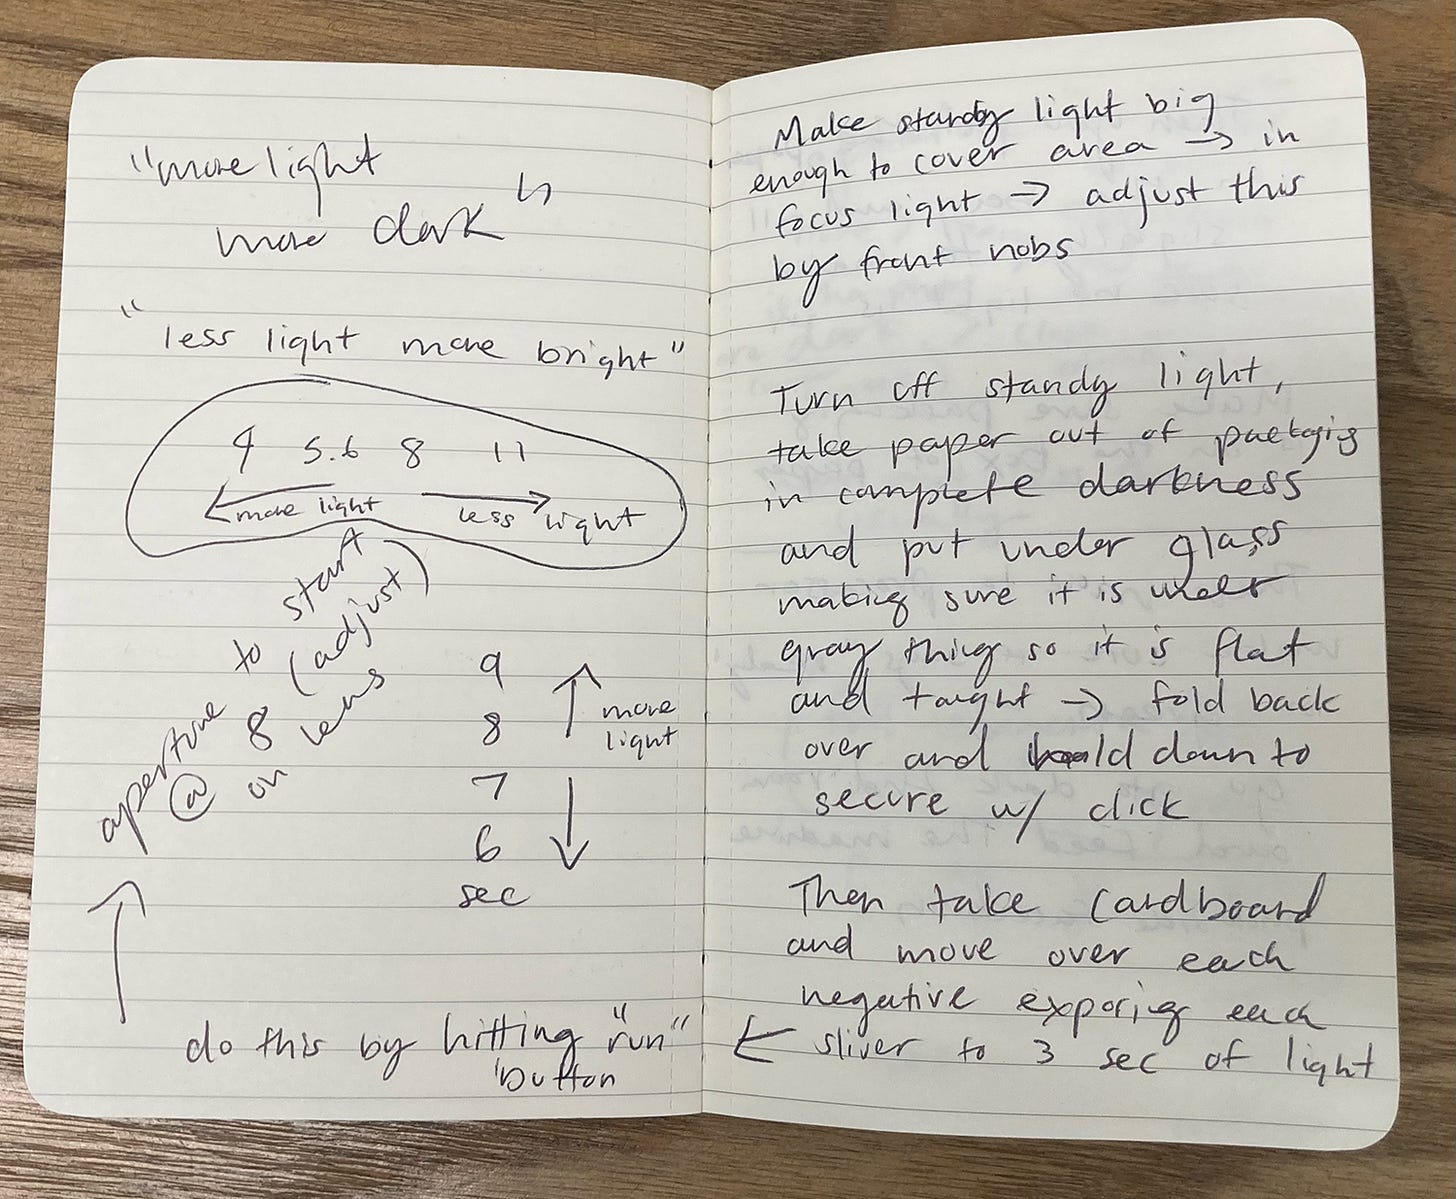 "more light
more dark"
"less light more bright"
4 5.6 8 11
more light less light
aperture to start
@ 8 (adjust)
on lens
9
8 more
light
7
6
sec
do this by hitting "run"
button
Make standby light big
enough to cover area → in
focus light → adjust this
by front nobs
Turn off standy light,
take paper out of
in complete darkness
and put under glass
making sure it is under
gray thing so it is flat
and taught → fold back
over and hold down to
secure w/ click
Then take cardboard
and move over each
negative exposing each
sliver to 3 sec of light